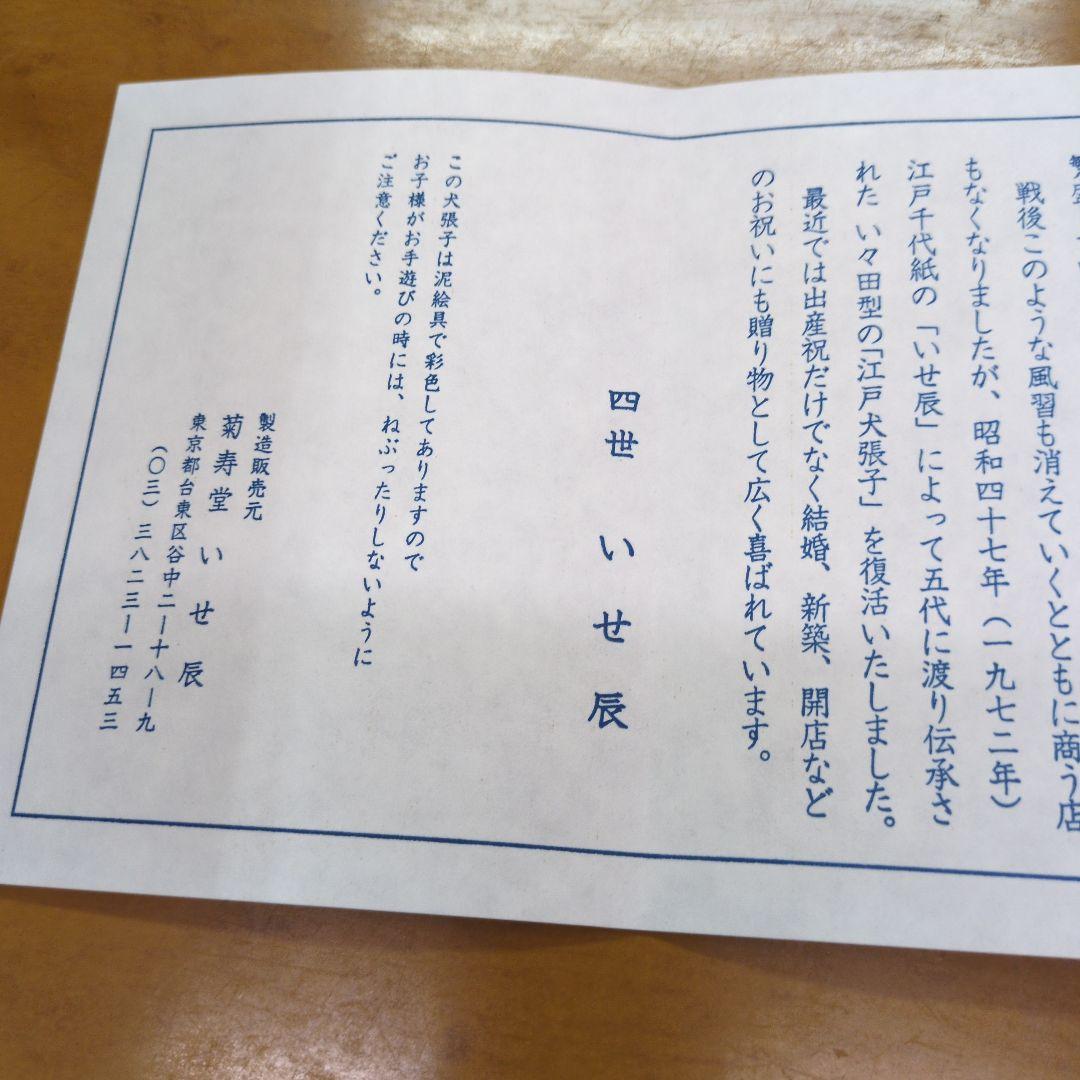 戦後このような風習も消えていくとともに商う店
もなくなりましたが、昭和四十七年（一九七二年）
江戸千代紙の「いせ辰」によって五代に渡り伝承さ
れた い々田型の「江戸犬張子」を復活いたしました。
最近では出産祝だけでなく結婚、新築、開店など
のお祝いにも贈り物として広く喜ばれています。
四世 いせ辰
この犬張子は泥絵具で彩色してありますので
お子様がお手遊びの時には、ねぶったりしないように
ご注意ください。
製造販売元
菊寿堂 いせ辰
東京都台東区谷中二ー十八ー九
（〇三）三八二三ー一四五三